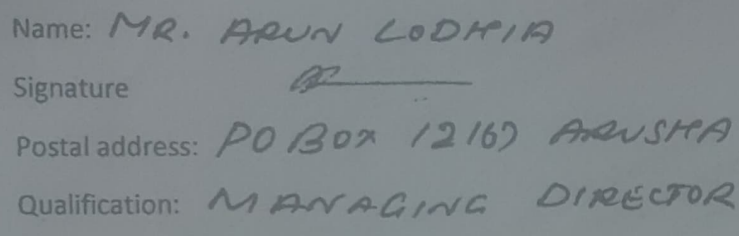 Name: MR. ARUN LODHIA
Signature
Postal address: PO BOX 12167 ARUSHA
Qualification: MANAGING DIRECTOR